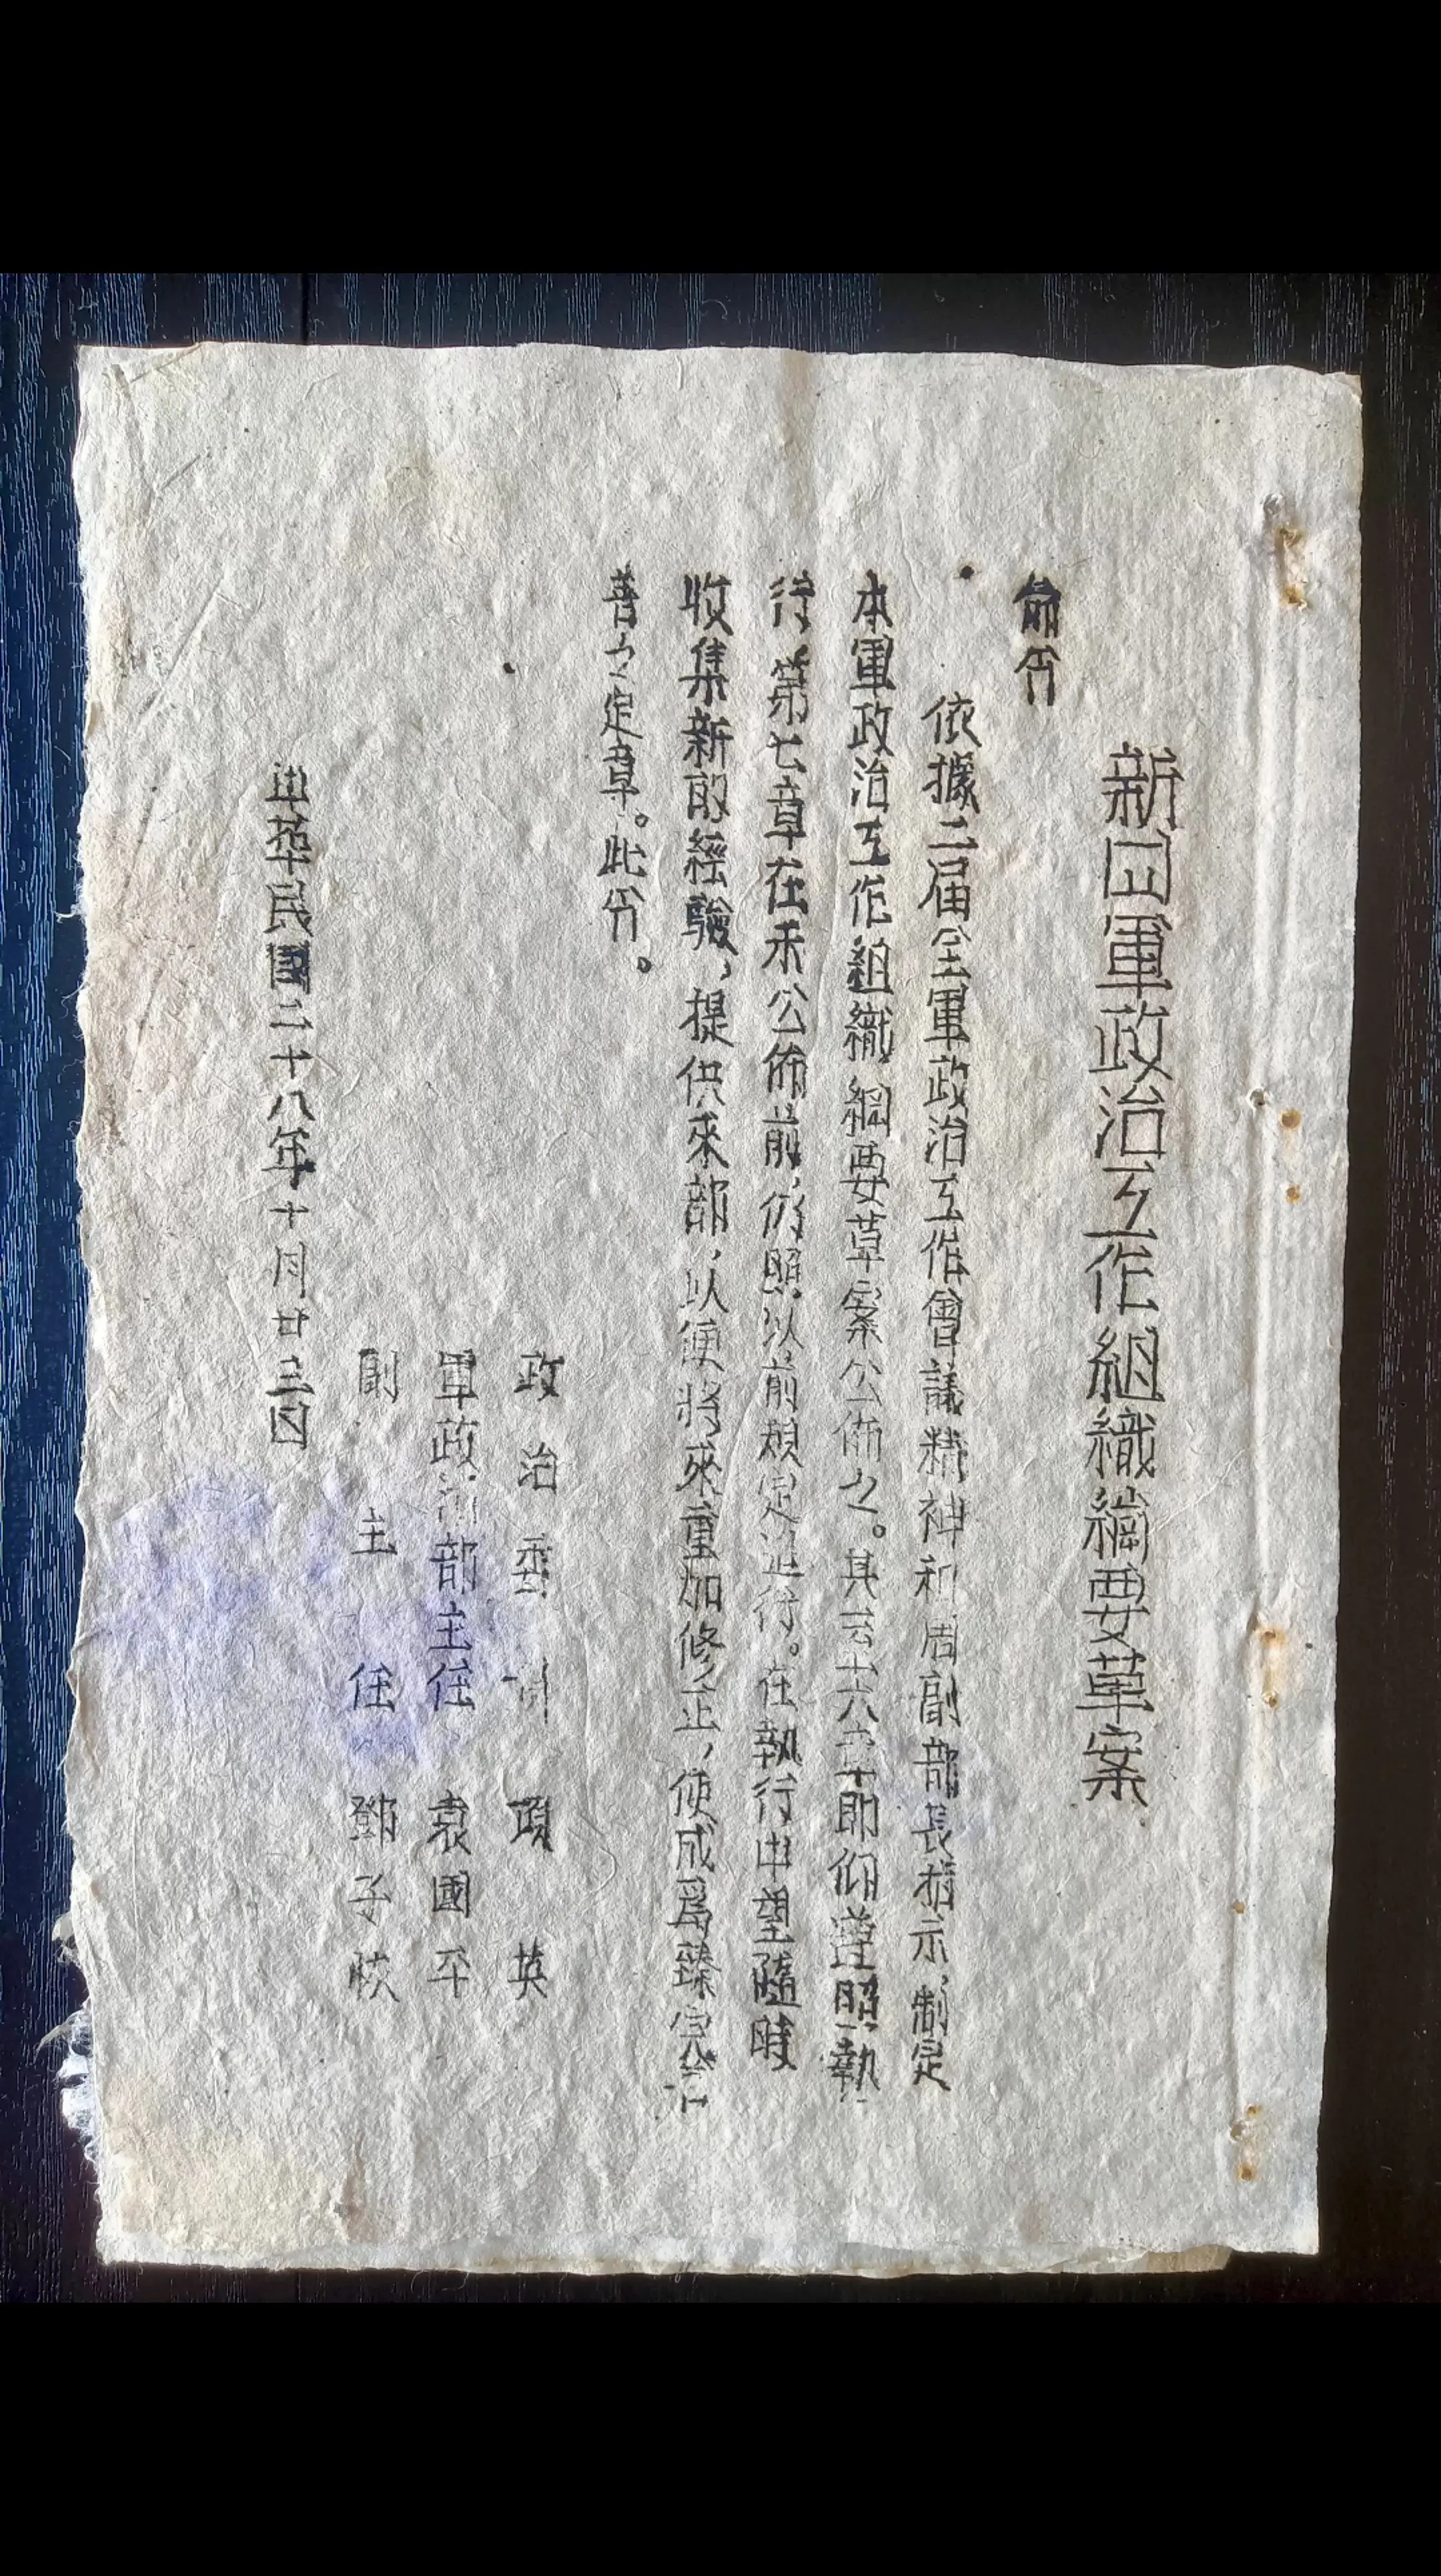 新四軍政治工作組織綱要草案
命令
依據二届全軍政治工作會議精神和周副部長指示,制定
本軍政治工作組織綱要草案公佈之。其 六章即仰遵照執
行,第七章在未公佈前,仍照以前規定進行。在執行中望隨時
收集新的經驗,提供來部,以便將來重加修正,使成爲臻完
善之定章。此令。
政治委 項英
軍政治部主任 袁國平
副主任 鄧子恢
中華民國二十八年十月廿三日